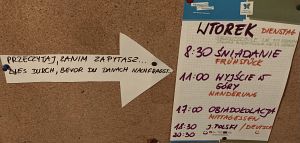 PRZECZYTAJ, ZANIM ZAPYTASZ...
LIES DURCH, BEVOR DU DANACH NACHFRAGST
WTOREK DIENSTAG
8:30 ŚNIADANIE
FRÜHSTÜCK
11:00 WYJŚCIE W
GÓRY
WANDERUNG
17:00 OBIADOKOLACJA
MITTAGESSEN
18:30 J. POLSKI / DEUTSCH
20:30